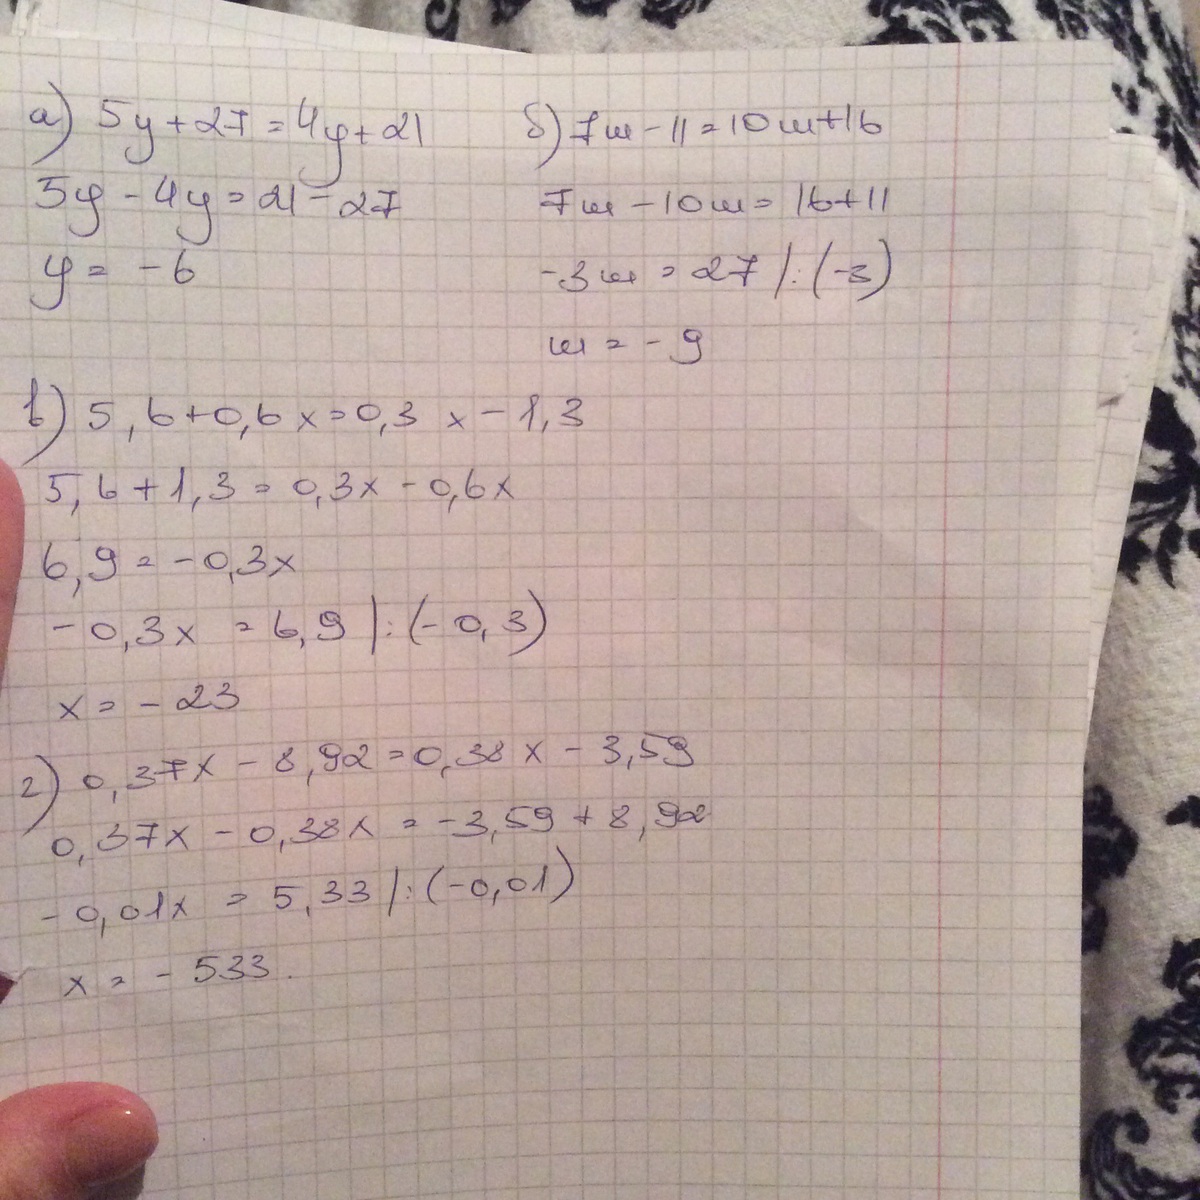 а) 5y+27=4y+21
5y-4y=21-27
y=-6
б) 7ш-11=10ш+16
7ш-10ш=16+11
-3ш=27 |:(-3)
ш=-9
в) 5,6+0,6x=0,3x-1,3
5,6+1,3=0,3x-0,6x
6,9=-0,3x
-0,3x=6,9 |:(-0,3)
x=-23
г) 0,37x-8,92=0,38x-3,59
0,37x-0,38x=-3,59+8,92
-0,01x=5,33 |:(-0,01)
x=-533.